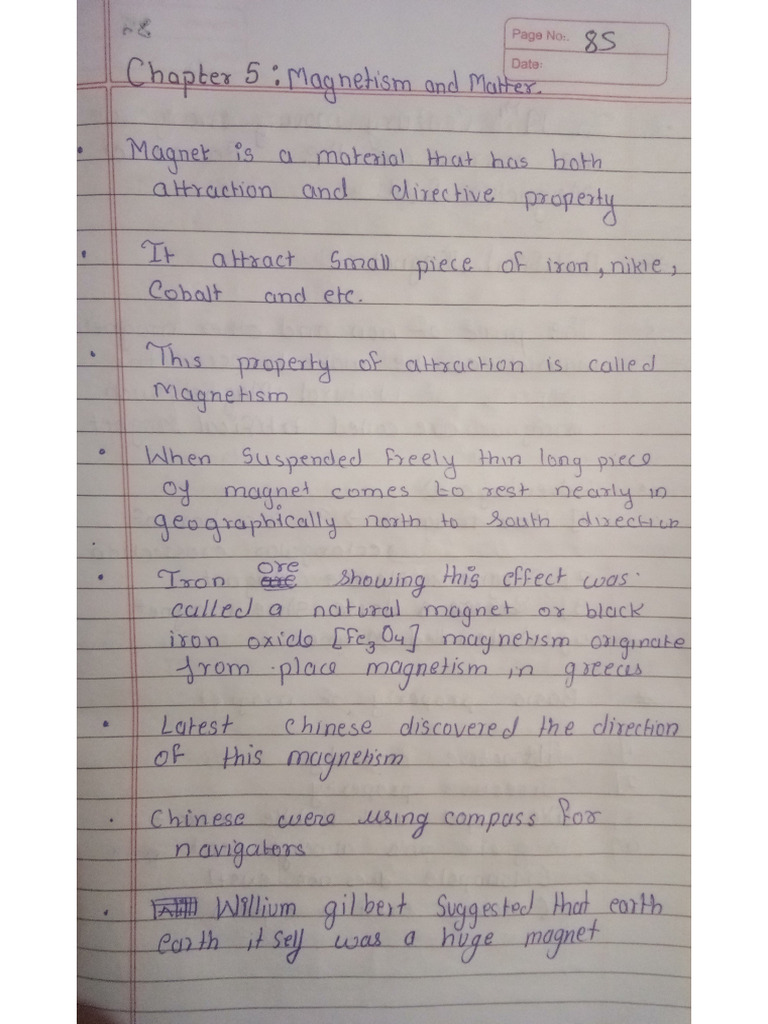 Page No:. 85
Date:
Chapter 5 : Magnetism and Matter.
• Magnet is a material that has both
attraction and directive property
• It attract small piece of iron, nikle,
Cobalt and etc.
• This property of attraction is called
Magnetism
• When suspended freely thin long piece
of magnet comes to rest nearly in
geographically north to south direction
• Iron ore showing this effect was
called a natural magnet or black
iron oxide [Fe3O4] magnetism originate
from place magnetism in greeces
• Latest Chinese discovered the direction
of this magnetism
• Chinese were using compass for
navigators
• Willium gilbert suggested that earth
earth itself was a huge magnet